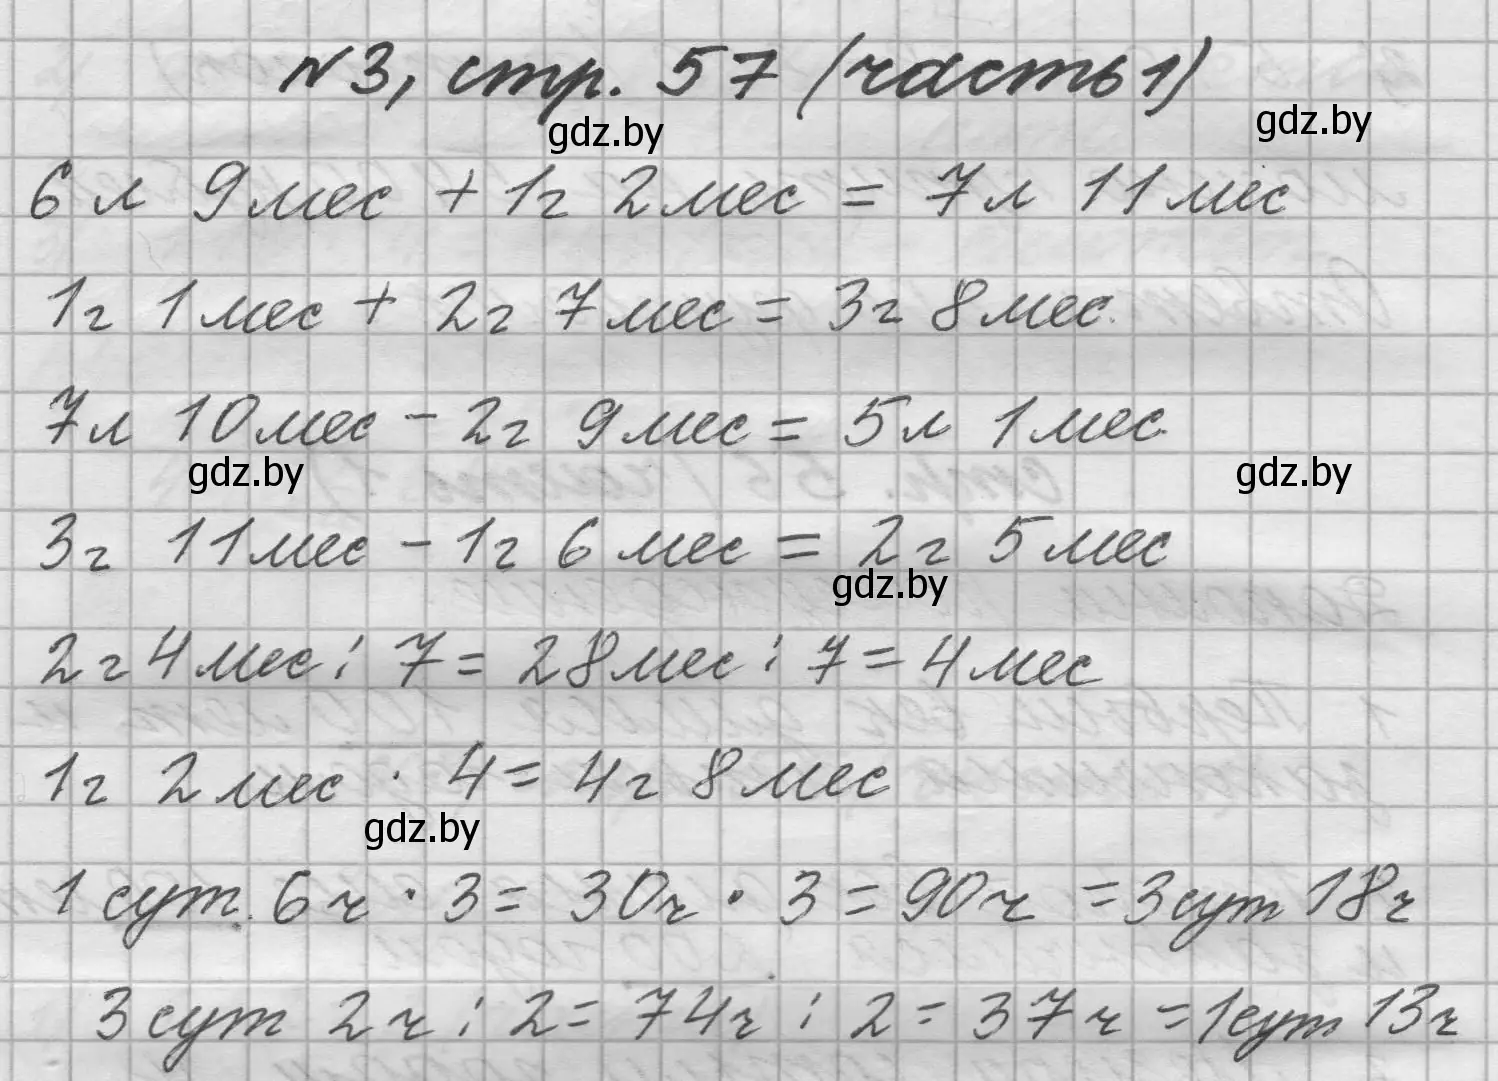 №3, стр. 57 (часть 1)
gdz.by
gdz.by
6 л 9 мес + 1 г 2 мес = 7 л 11 мес
1 г 1 мес + 2 г 7 мес = 3 г 8 мес.
7 л 10 мес - 2 г 9 мес = 5 л 1 мес.
gdz.by
gdz.by
3 г 11 мес - 1 г 6 мес = 2 г 5 мес
gdz.by
2 г 4 мес : 7 = 28 мес : 7 = 4 мес
1 г 2 мес · 4 = 4 г 8 мес
gdz.by
1 сут. 6 ч · 3 = 30 ч · 3 = 90 ч = 3 сут 18 ч
3 сут 2 ч : 2 = 74 ч : 2 = 37 ч = 1 сут 13 ч